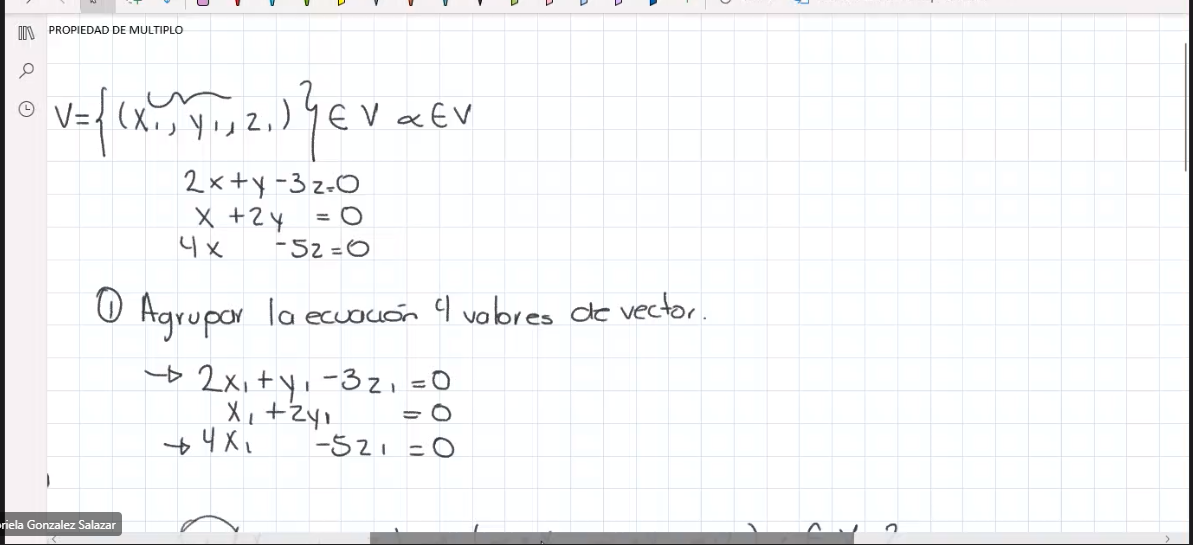 PROPIEDAD DE MULTIPLO
V={(x₁, y₁, z₁)} ∈ V ∝ ∈ V
2x+y-3z=0
x +2y = 0
4x -5z=0
① Agrupar la ecuación y valores de vector.
→ 2x₁+y₁-3z₁=0
x₁+2y₁ =0
→ 4x₁ -5z₁=0
riela Gonzalez Salazar